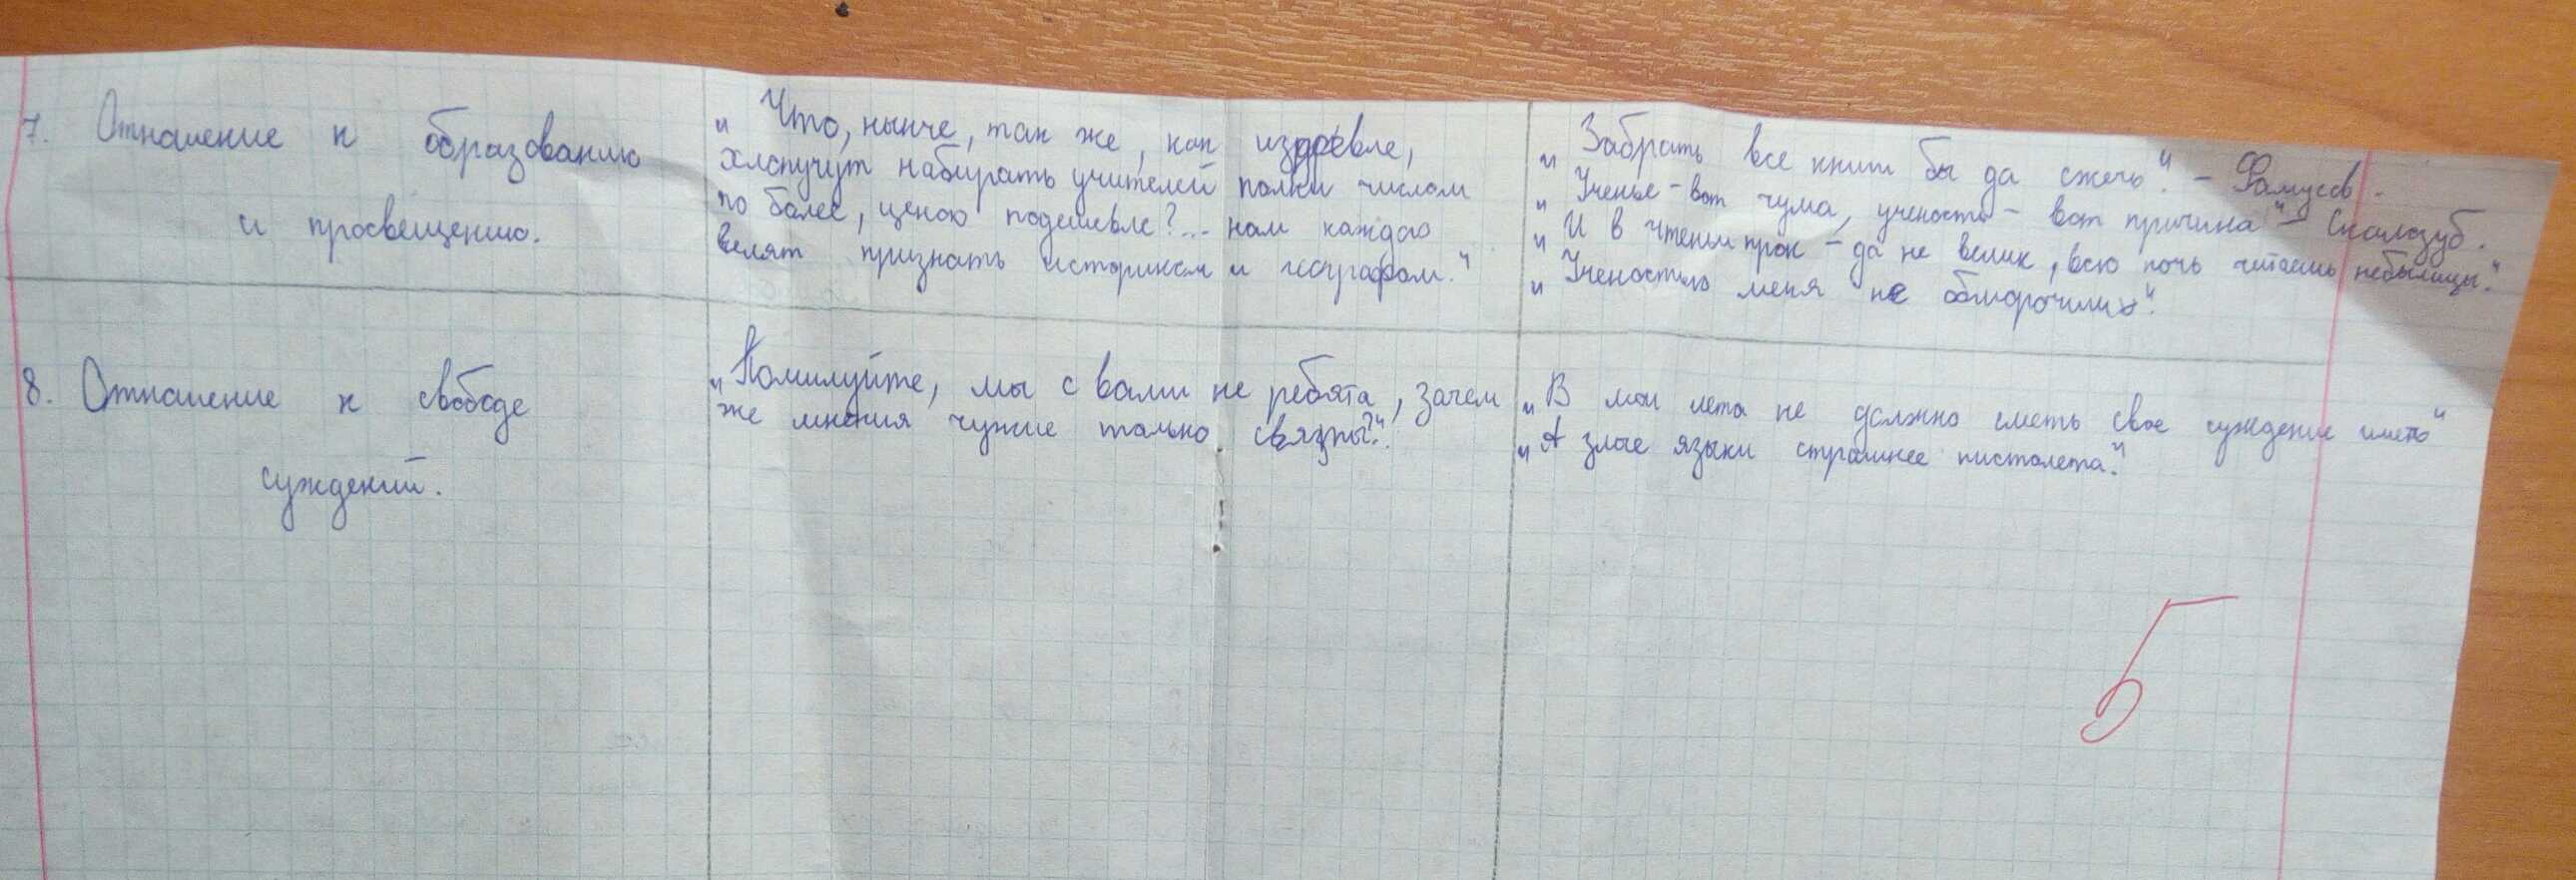 7. Отношение к образованию
и просвещению.
„Что, нынче, так же, как издревле,
хлопучут набирать учителей полки числом
по более, ценою подешевле?... нам каждого
велят признать историком и географом."
„Забрать все книги бы да сжечь". – Фамусов.
„Ученье – вот чума, ученость – вот причина" – Скалозуб.
„И в чтении прок – да не велик, всю ночь читаешь небылицы".
„Ученостью меня не обморочишь".
8. Отношение к свободе
суждений.
„Помилуйте, мы с вами не ребята, зачем
же мнения чужие только святы?".
„В мои лета не должно сметь свое суждение иметь"
„А злые языки страшнее пистолета."
5